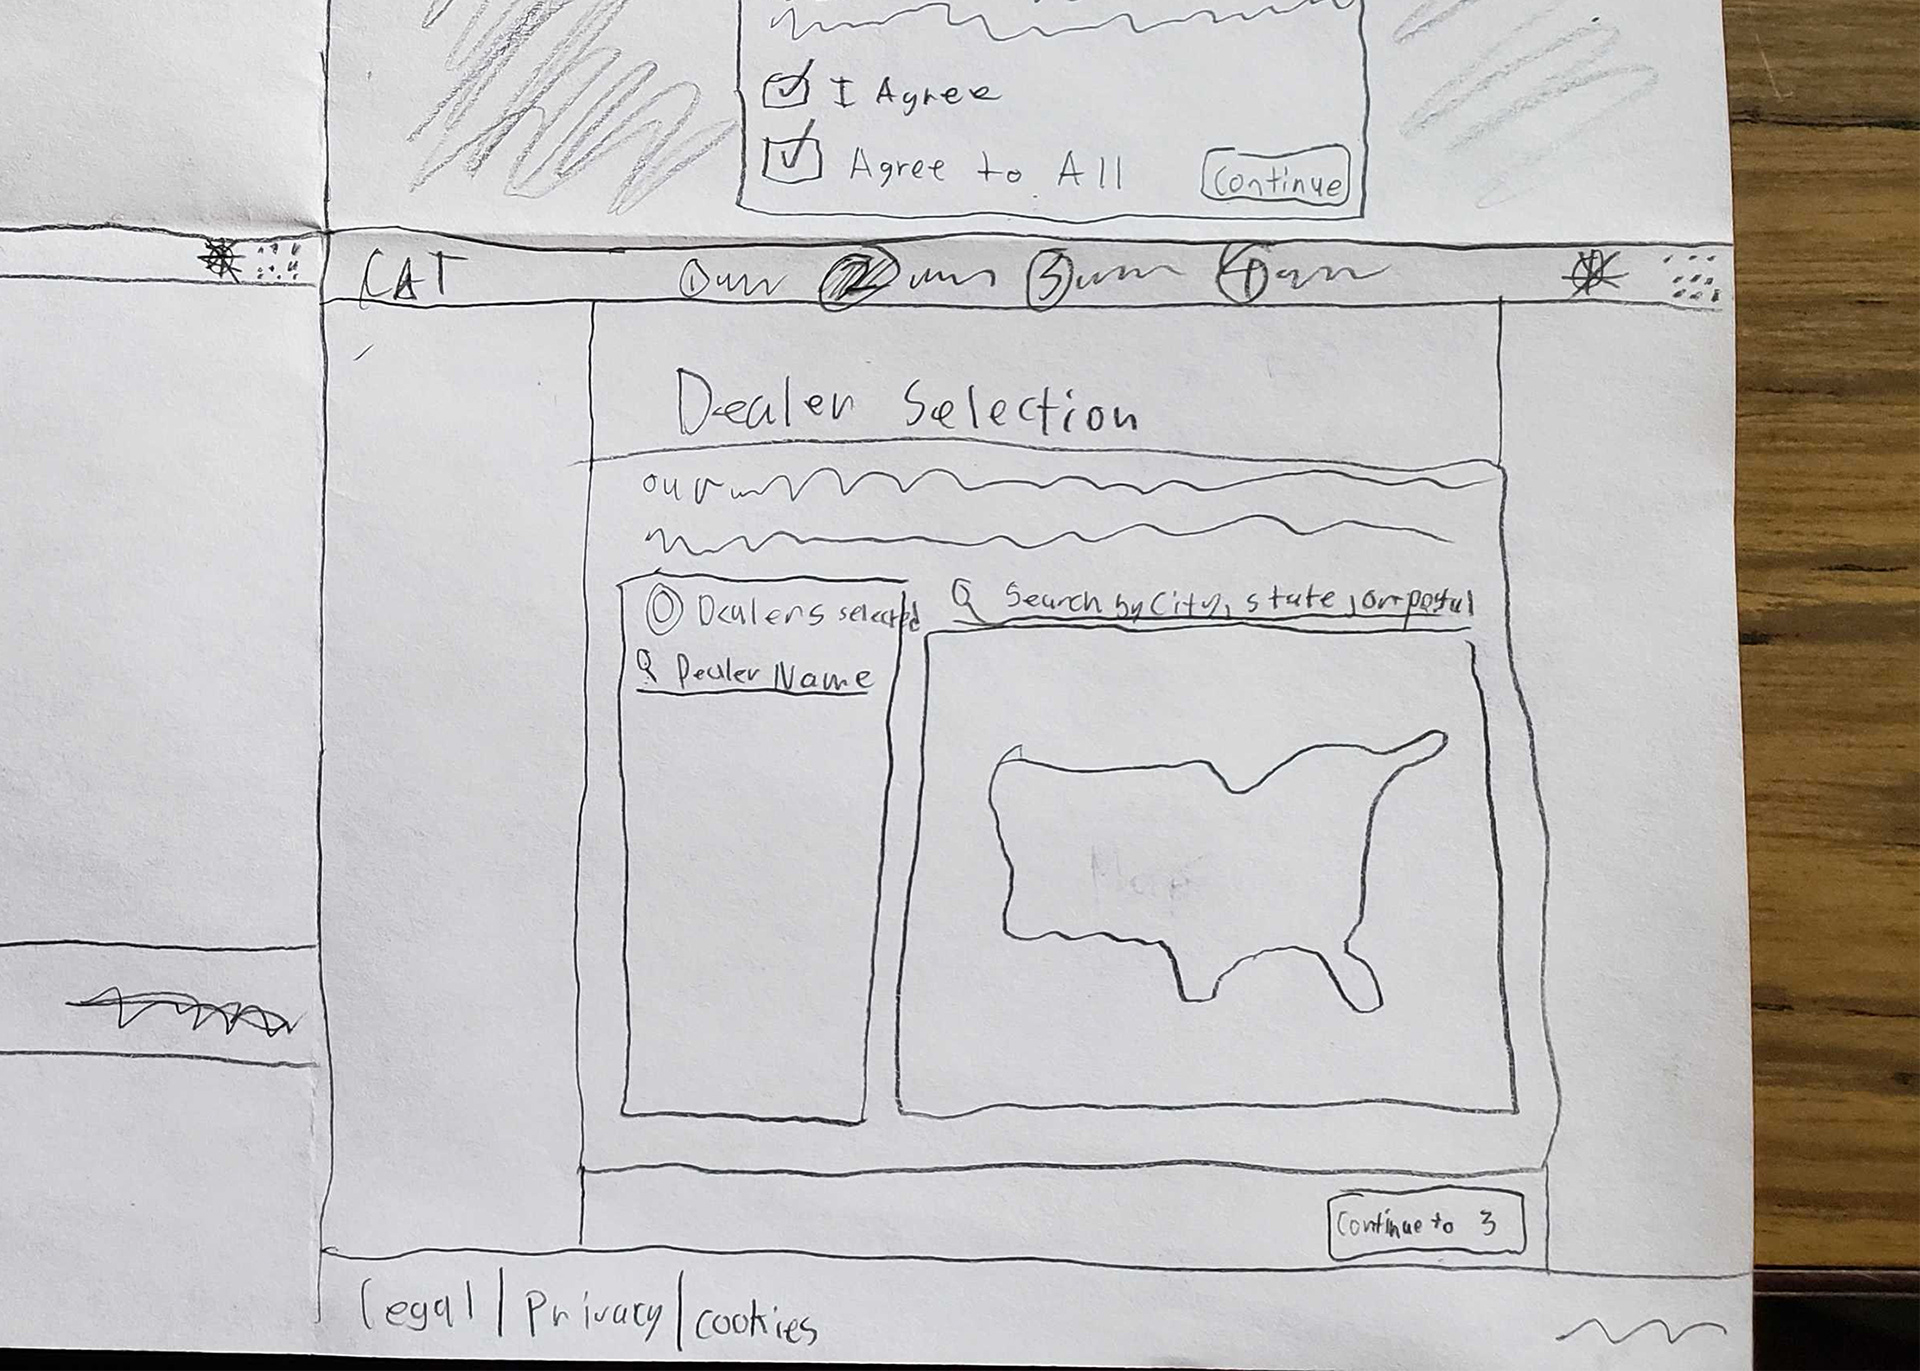 I Agree
Agree to All
Continue
CAT 1 2 3 4
Dealer Selection
our
0 Dealers selected
Search by City, state, or postal
Dealer Name
Continue to 3
Legal | Privacy | cookies